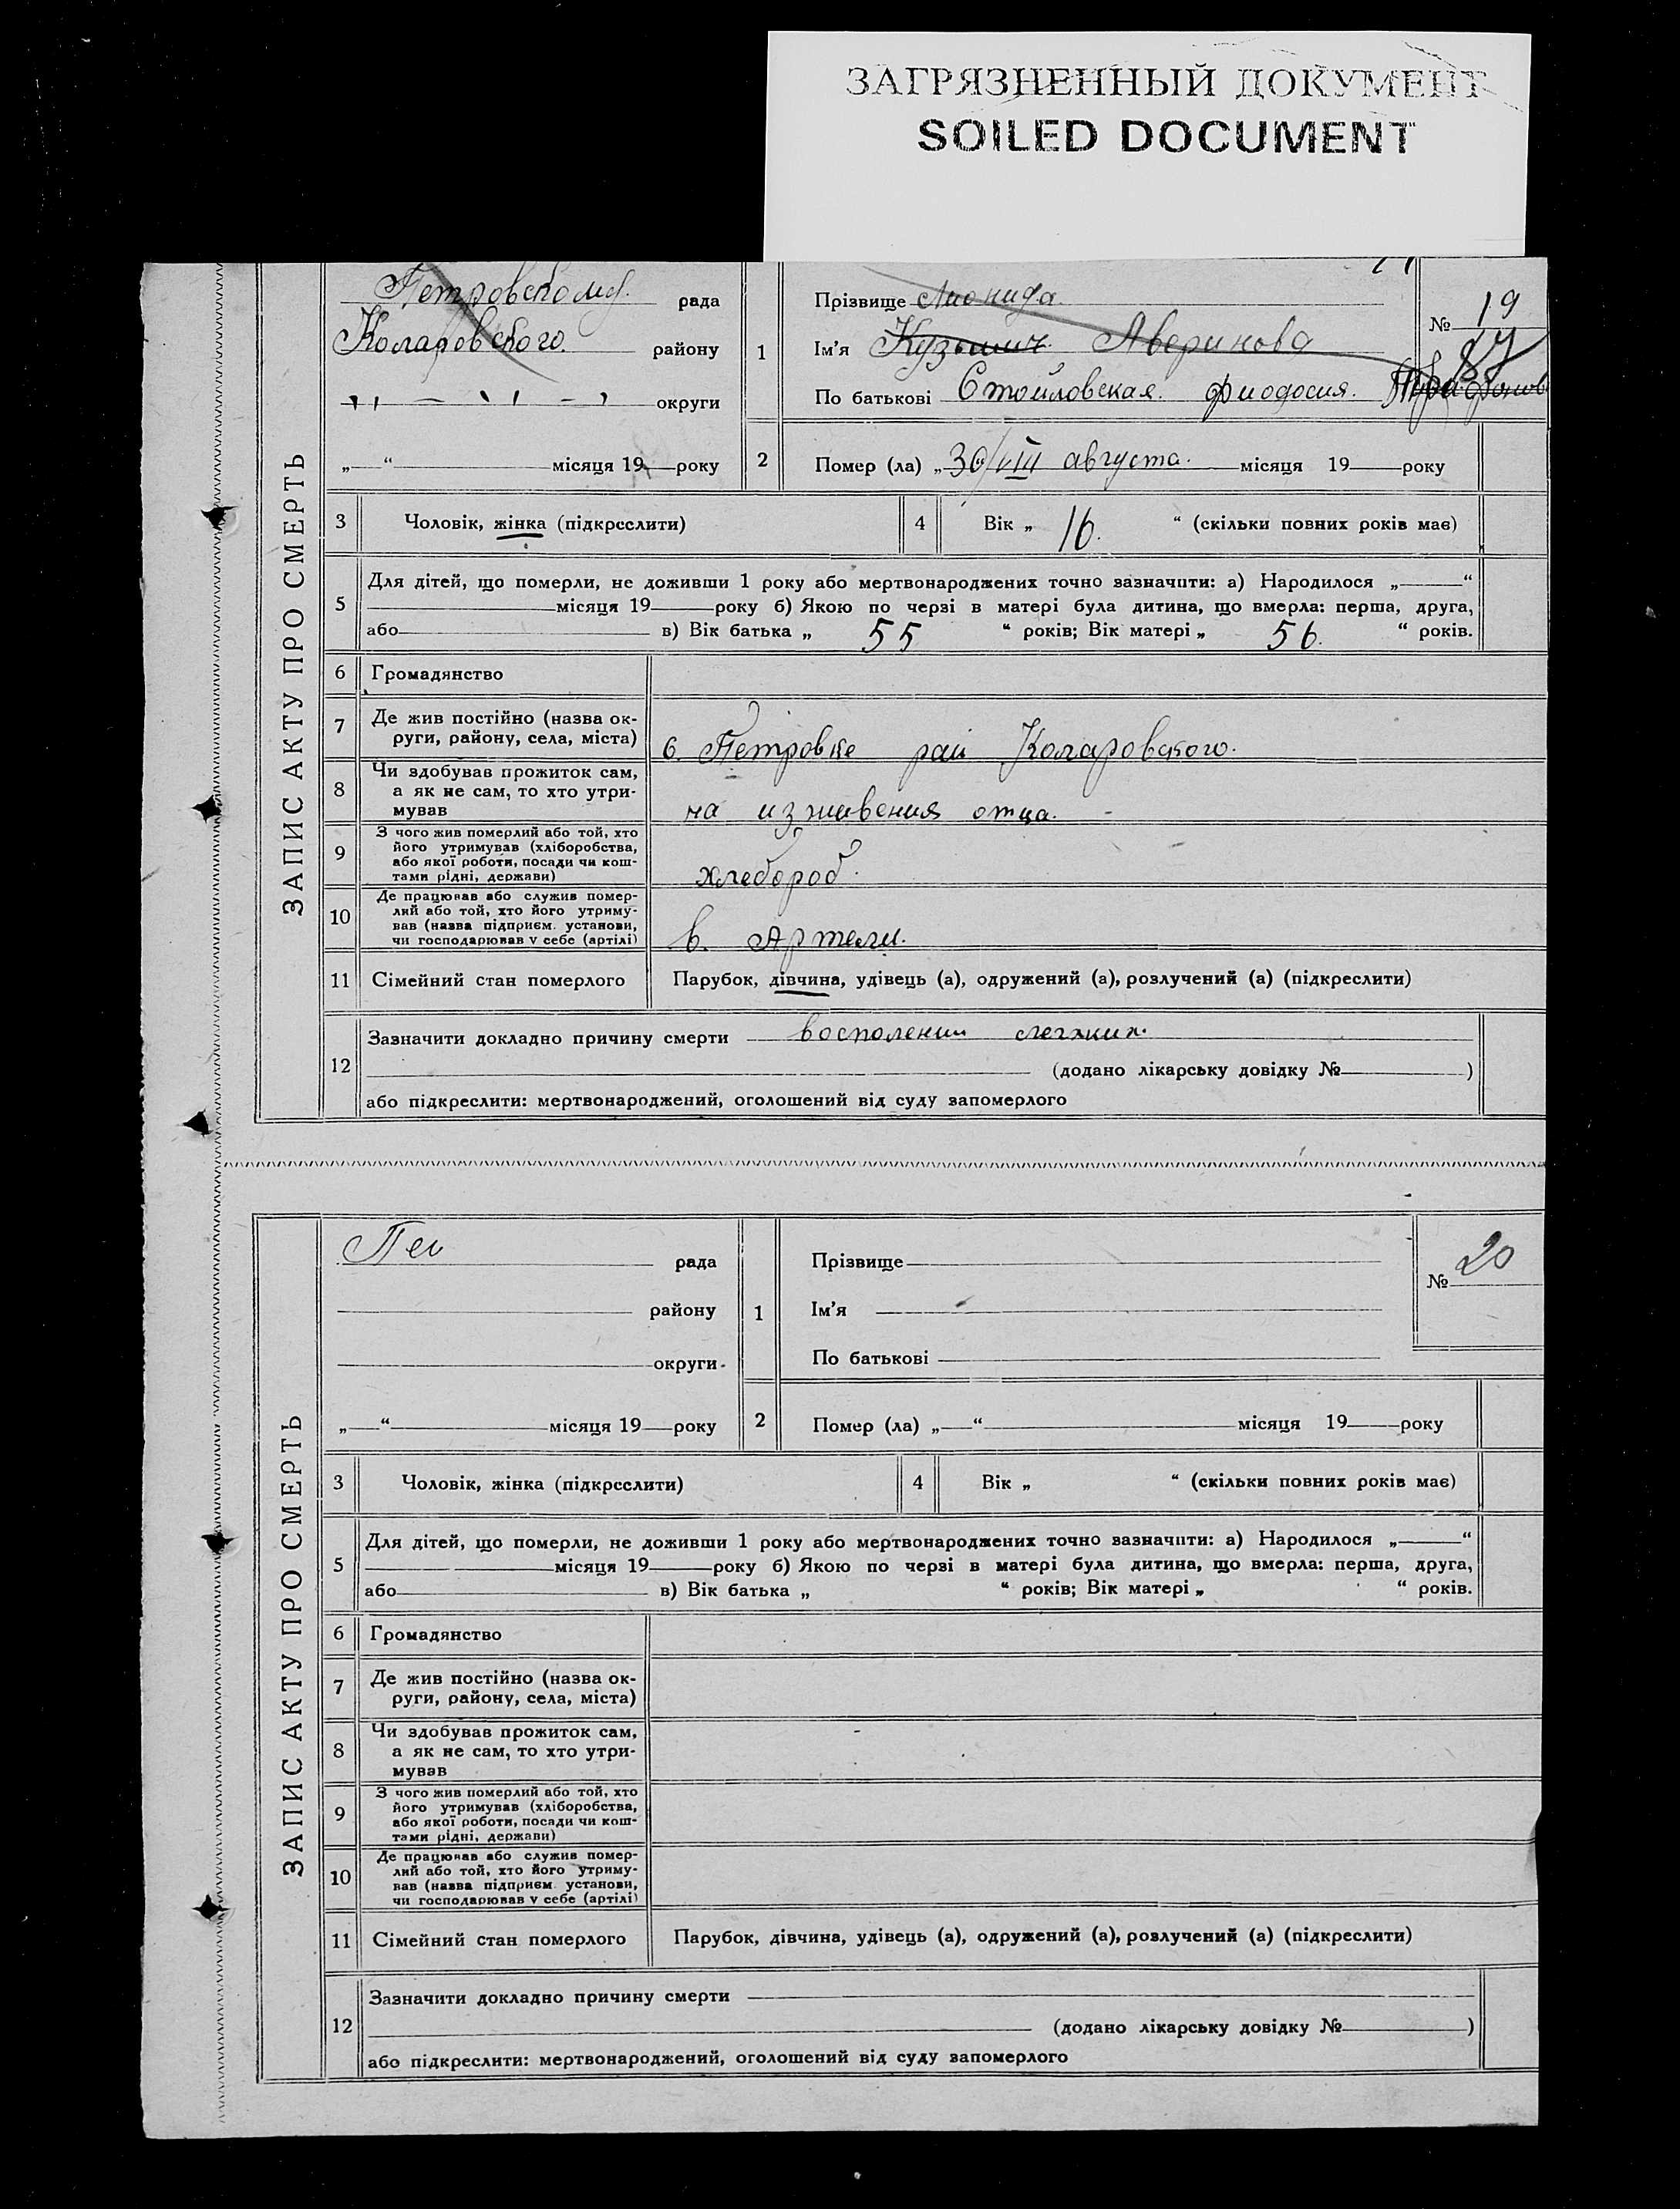 ЗАГРЯЗНЕННЫЙ ДОКУМЕНТ
SOILED DOCUMENT
ЗАПИС АКТУ ПРО СМЕРТЬ
Петровскому рада
Коларовского. району
округи
„ “ місяця 19 року
1
Прізвище Лионида
Ім'я Кузьмич Аверинова
По батькові Стойловская. Фиодосия.
№ 19
2
Помер (ла) „30/VIII августа. місяця 19 року
3 Чоловік, жінка (підкреслити)
4 Вік „ 16. “ (скільки повних років має)
5 Для дітей, що померли, не доживши 1 року або мертвонароджених точно зазначити: а) Народилося „ “
місяця 19 року б) Якою по черзі в матері була дитина, що вмерла: перша, друга,
або в) Вік батька „ 55 “ років; Вік матері „ 56. “ років.
6 Громадянство
7 Де жив постійно (назва ок-
руги, району, села, міста)
с. Петровке рай Коларовского.
8 Чи здобував прожиток сам,
а як не сам, то хто утри-
мував
на изживения отца.
9 З чого жив померлий або той, хто
його утримував (хліборобства,
або якої роботи, посади чи кош-
тами рідні, держави)
хлебороб.
10 Де працював або служив помер-
лий або той, хто його утриму-
вав (назва підприєм. установи,
чи господарював у себе (артілі)
в. Артели.
11 Сімейний стан померлого
Парубок, дівчина, удівець (а), одружений (а), розлучений (а) (підкреслити)
12 Зазначити докладно причину смерти восполении легжких.
(додано лікарську довідку № )
або підкреслити: мертвонароджений, оголошений від суду запомерлого
ЗАПИС АКТУ ПРО СМЕРТЬ
Пет рада
району
округи
„ “ місяця 19 року
1
Прізвище
Ім'я
По батькові
№ 20
2
Помер (ла) „ “ місяця 19 року
3 Чоловік, жінка (підкреслити)
4 Вік „ “ (скільки повних років має)
5 Для дітей, що померли, не доживши 1 року або мертвонароджених точно зазначити: а) Народилося „ “
місяця 19 року б) Якою по черзі в матері була дитина, що вмерла: перша, друга,
або в) Вік батька „ “ років; Вік матері „ “ років.
6 Громадянство
7 Де жив постійно (назва ок-
руги, району, села, міста)
8 Чи здобував прожиток сам,
а як не сам, то хто утри-
мував
9 З чого жив померлий або той, хто
його утримував (хліборобства,
або якої роботи, посади чи кош-
тами рідні, держави)
10 Де працював або служив помер-
лий або той, хто його утриму-
вав (назва підприєм. установи,
чи господарював у себе (артілі)
11 Сімейний стан померлого
Парубок, дівчина, удівець (а), одружений (а), розлучений (а) (підкреслити)
12 Зазначити докладно причину смерти
(додано лікарську довідку № )
або підкреслити: мертвонароджений, оголошений від суду запомерлого